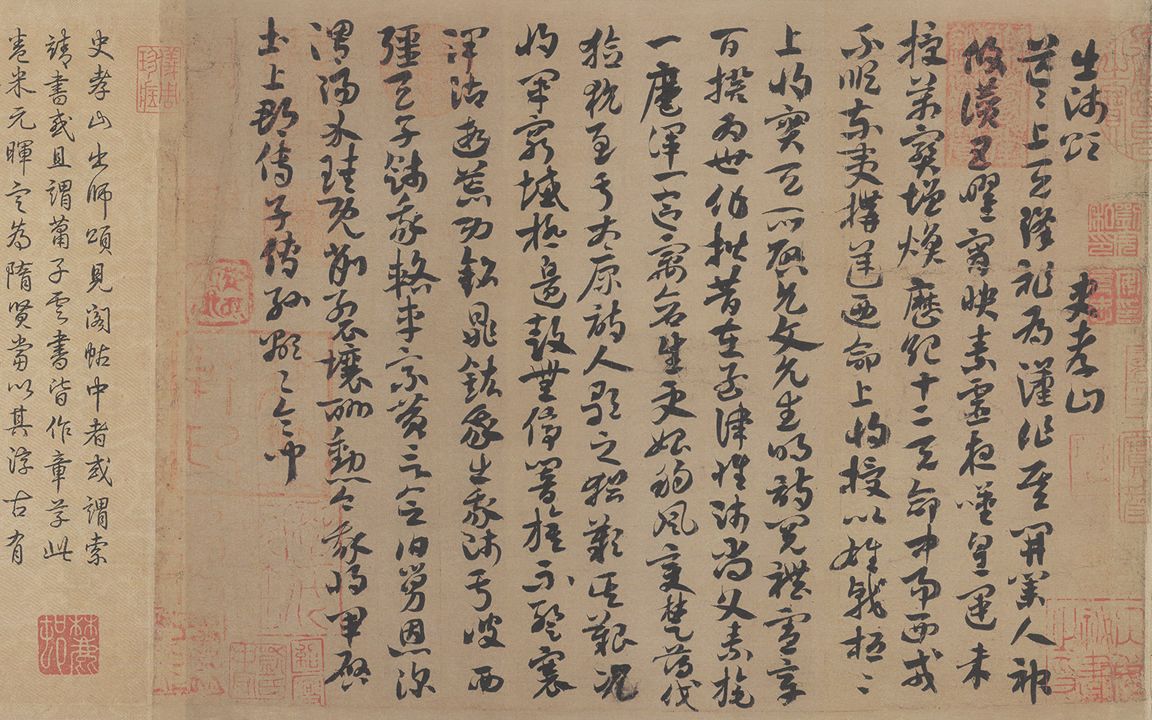 出師頌 史孝山
茫〻上天降祚為漢作基開業人神
攸讚五曜霄映素靈夜嘆皇運未
授萬寶增煥歷紀十二天命中易西戎
不順東夷搆逆迺命上將授以雄戟桓〻
上將寔天所啟允文允武明詩閱禮憲章
百揆為世作楷昔在孟津惟師尚父素旄
一麾渾一區寓蒼生更始朔風變楚薄伐
獫狁至于太原詩人歌之猶歎其艱況
我將軍窮域極邊鼓無停響旗不蹔褰
澤沾遐荒功銘鼎鉉我出我師于彼西
疆天子餞我輅車乘黃言念伯舅恩深
渭陽介珪既削裂壤酬勳今我將軍啟
土上郡傳子傳孫顯〻令問
儀周珍藏
史孝山出師頌見閣帖中者或謂索
靖書或且謂蕭子雲書皆作章草此
卷米元暉定為隋賢當以其淳古有